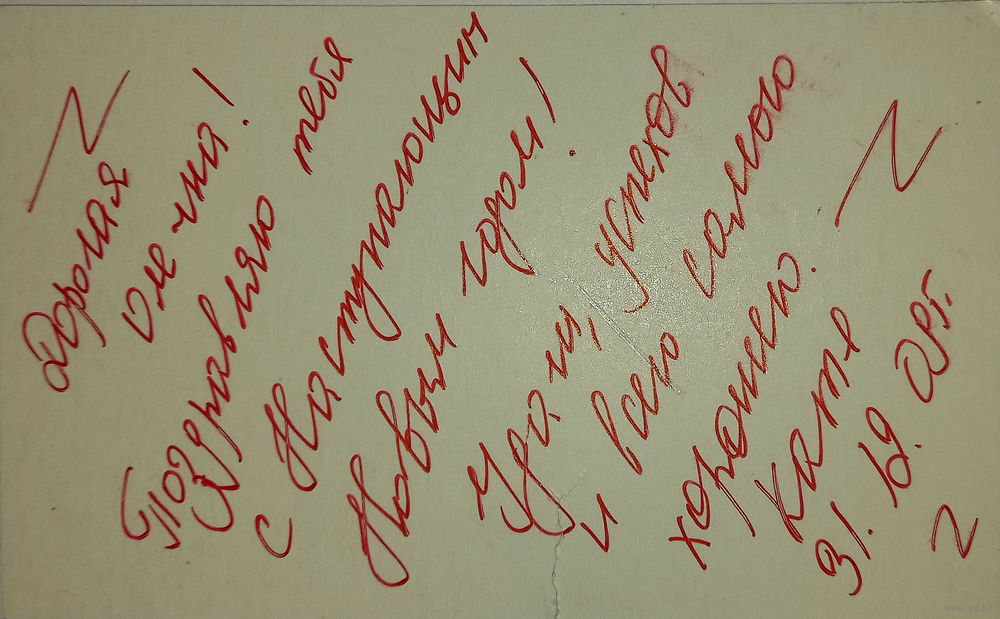 Дорогая
Олечка!
Поздравляю тебя
с Наступающим
Новым годом!
Удачи, успехов
и всего самого
хорошего.
Катя
31. 12.
www.ay.by